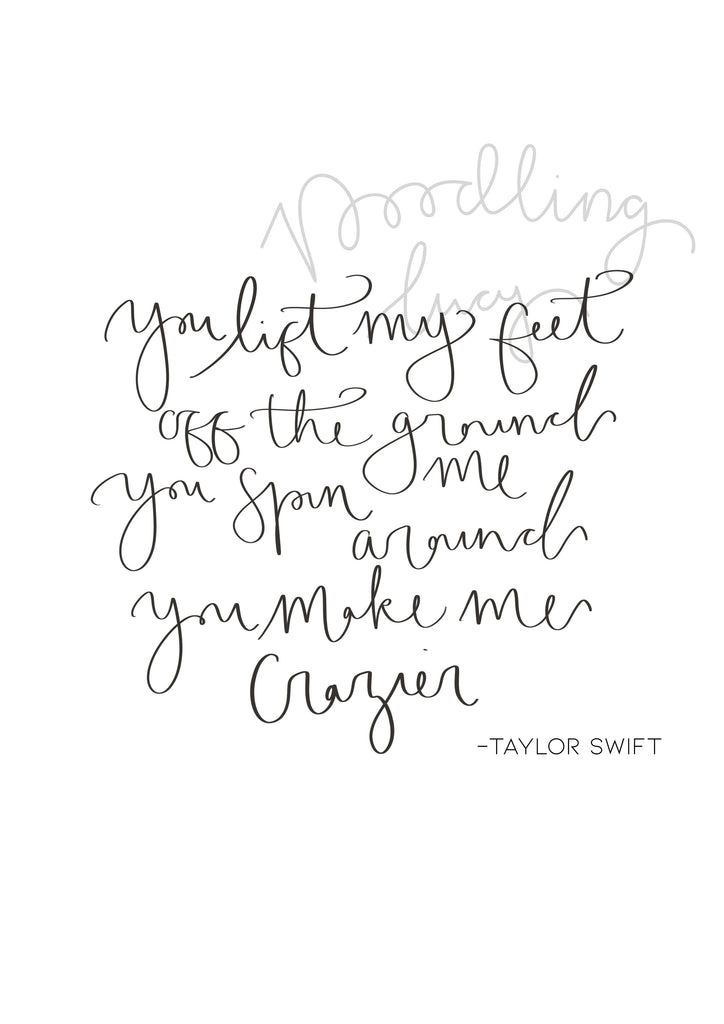 Doodling
lucy
you lift my feet
off the ground
you spin me
around
you make me
Crazier
-TAYLOR SWIFT